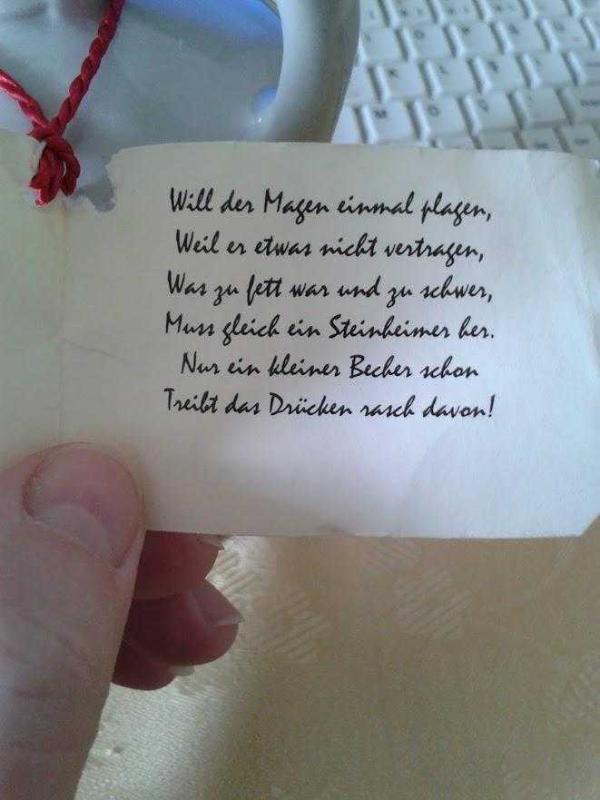 Will der Magen einmal plagen,
Weil er etwas nicht vertragen,
Was zu fett war und zu schwer,
Muss gleich ein Steinheimer her.
Nur ein kleiner Becher schon
Treibt das Drücken rasch davon!